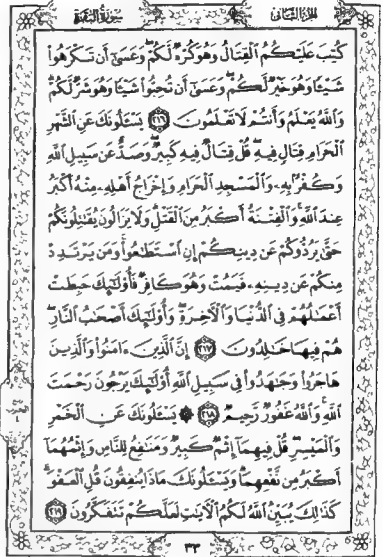 الجزء الثاني سورة البقرة
كُتِبَ عَلَيْكُمُ ٱلْقِتَالُ وَهُوَ كُرْهٌ لَّكُمْ وَعَسَىٰٓ أَن تَكْرَهُوا۟
شَيْـًٔا وَهُوَ خَيْرٌ لَّكُمْ وَعَسَىٰٓ أَن تُحِبُّوا۟ شَيْـًٔا وَهُوَ شَرٌّ لَّكُمْ
وَٱللَّهُ يَعْلَمُ وَأَنتُمْ لَا تَعْلَمُونَ ٢١٦ يَسْـَٔلُونَكَ عَنِ ٱلشَّهْرِ
ٱلْحَرَامِ قِتَالٍ فِيهِ قُلْ قِتَالٌ فِيهِ كَبِيرٌ وَصَدٌّ عَن سَبِيلِ ٱللَّهِ
وَكُفْرٌۢ بِهِۦ وَٱلْمَسْجِدِ ٱلْحَرَامِ وَإِخْرَاجُ أَهْلِهِۦ مِنْهُ أَكْبَرُ
عِندَ ٱللَّهِ وَٱلْفِتْنَةُ أَكْبَرُ مِنَ ٱلْقَتْلِ وَلَا يَزَالُونَ يُقَـٰتِلُونَكُمْ
حَتَّىٰ يَرُدُّوكُمْ عَن دِينِكُمْ إِنِ ٱسْتَطَـٰعُوا۟ وَمَن يَرْتَدِدْ
مِنكُمْ عَن دِينِهِۦ فَيَمُتْ وَهُوَ كَافِرٌ فَأُو۟لَـٰٓئِكَ حَبِطَتْ
أَعْمَـٰلُهُمْ فِى ٱلدُّنْيَا وَٱلْـَٔاخِرَةِ وَأُو۟لَـٰٓئِكَ أَصْحَـٰبُ ٱلنَّارِ
هُمْ فِيهَا خَـٰلِدُونَ ٢١٧ إِنَّ ٱلَّذِينَ ءَامَنُوا۟ وَٱلَّذِينَ
هَاجَرُوا۟ وَجَـٰهَدُوا۟ فِى سَبِيلِ ٱللَّهِ أُو۟لَـٰٓئِكَ يَرْجُونَ رَحْمَتَ
ٱللَّهِ وَٱللَّهُ غَفُورٌ رَّحِيمٌ ٢١٨ ۞ يَسْـَٔلُونَكَ عَنِ ٱلْخَمْرِ
وَٱلْمَيْسِرِ قُلْ فِيهِمَآ إِثْمٌ كَبِيرٌ وَمَنَـٰفِعُ لِلنَّاسِ وَإِثْمُهُمَآ
أَكْبَرُ مِن نَّفْعِهِمَا وَيَسْـَٔلُونَكَ مَاذَا يُنفِقُونَ قُلِ ٱلْعَفْوَ
كَذَٰلِكَ يُبَيِّنُ ٱللَّهُ لَكُمُ ٱلْـَٔايَـٰتِ لَعَلَّكُمْ تَتَفَكَّرُونَ ٢١٩